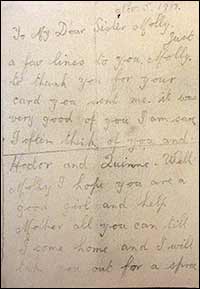 Nov. 5. 1917.
To My Dear Sister Molly.
Just
a few lines to you, Molly,
to thank you for your
card you sent me. it was
very good of you I am sure
I often think of you and
Hector and Quinnie. Well
Molly I hope you are a
good girl and help
Mother all you can till
I come home and I will
take you out for a spree